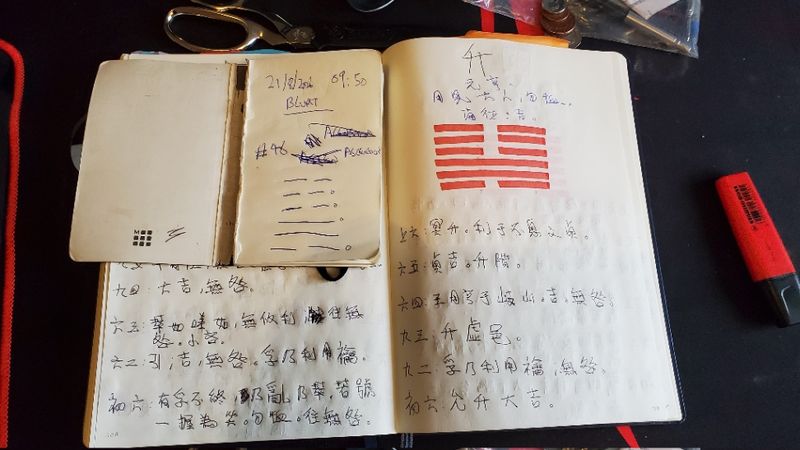 09:50
BLURT
#46
九四:大吉,無咎。
六三:萃如嗟如,無攸利 往無
咎。小吝。
六二:引;吉,無咎。孚乃利用禴。
初六:有孚不終,乃亂乃萃,若號
一握為笑。勿恤。往無咎。
升
元亨。
用見大人,勿恤。
南征:吉。
上六:冥升。利于不息之貞。
六五:貞吉。升階。
六四:王用亨于岐山。吉,無咎。
九三:升虛邑。
九二:孚乃利用禴,無咎。
初六:允升大吉。